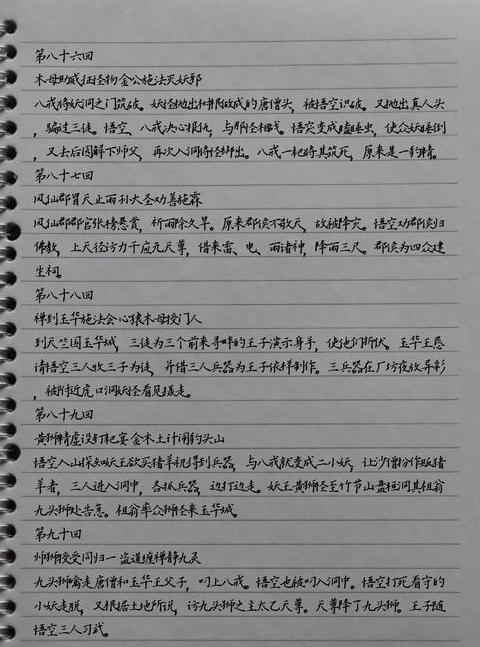 第八十六回
木母助威征怪物金公施法灭妖邪
八戒将妖洞之门筑破。妖怪抛出柳根做成的唐僧头,被悟空识破。又抛出真人头
,骗过三徒。悟空、八戒决心报仇,与那怪相战。悟空变成瞌睡虫,使众妖睡倒
,又去后园解下师父,再次入洞将怪绑出。八戒一耙将其筑死,原来是一豹精。
第八十七回
凤仙郡冒天止雨孙大圣劝善施霖
凤仙郡郡官张榜悬赏,祈雨除久旱。原来郡侯不敬天,故被降灾。悟空劝郡侯归
佛教,上天径访九天应元天尊,借来雷、电、雨诸神,降雨三尺。郡侯为四众建
生祠。
第八十八回
禅到玉华施法会心猿木母授门人
到天竺国玉华城,三徒为三个前来寻衅的王子演示身手,使他们折伏。玉华王恳
请悟空三人收三子为徒,并借三人兵器为王子依样制作。三兵器在厂坊夜放异彩
,被附近虎口洞妖怪看见摄走。
第八十九回
黄狮精虚设钉耙宴金木土计闹豹头山
悟空入山探知妖王欲买猪羊祝得到兵器,与八戒就变成二小妖,让沙僧扮作贩猪
羊者,三人进入洞中,各抓兵器,边打边走。妖王黄狮怪至竹节山盘桓洞其祖翁
九头狮处告急。祖翁率众狮怪来玉华城。
第九十回
师狮授受同归一盗道缠禅静九灵
九头狮禽走唐僧和玉华王父子,叼上八戒。悟空也被叼入洞中。悟空打死看守的
小妖走脱,又根据土地所说,访九头狮之主太乙天尊。天尊降了九头狮。王子随
悟空三人习武。